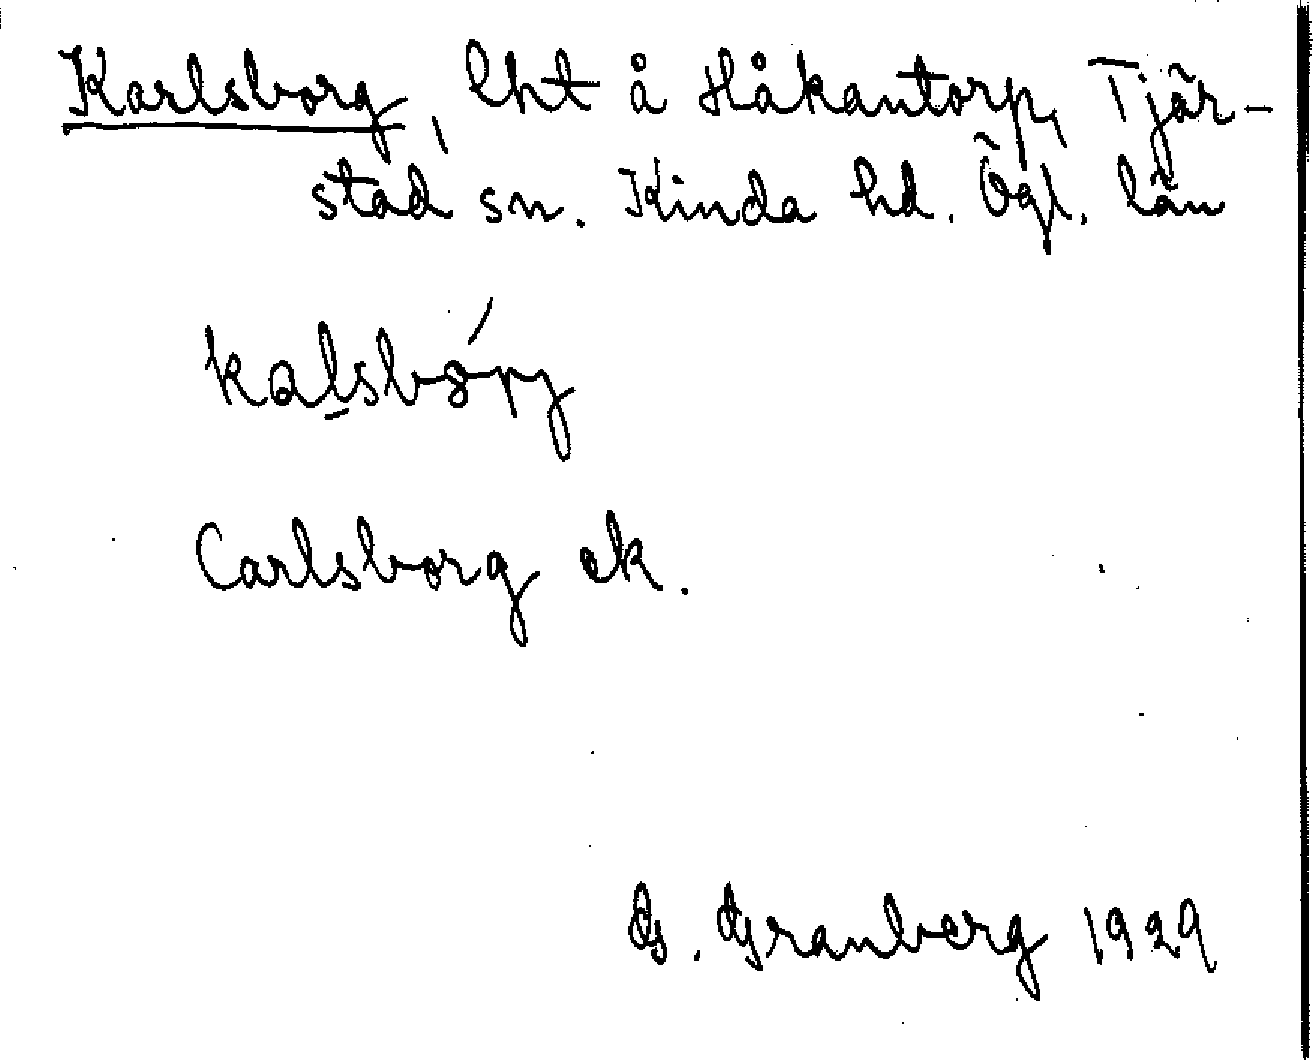 Karlsborg, lht å Håkantorp, Tjär-
stad sn. Kinda hd. Ögl. län
Carlsborg ek.
G. Granberg 1929